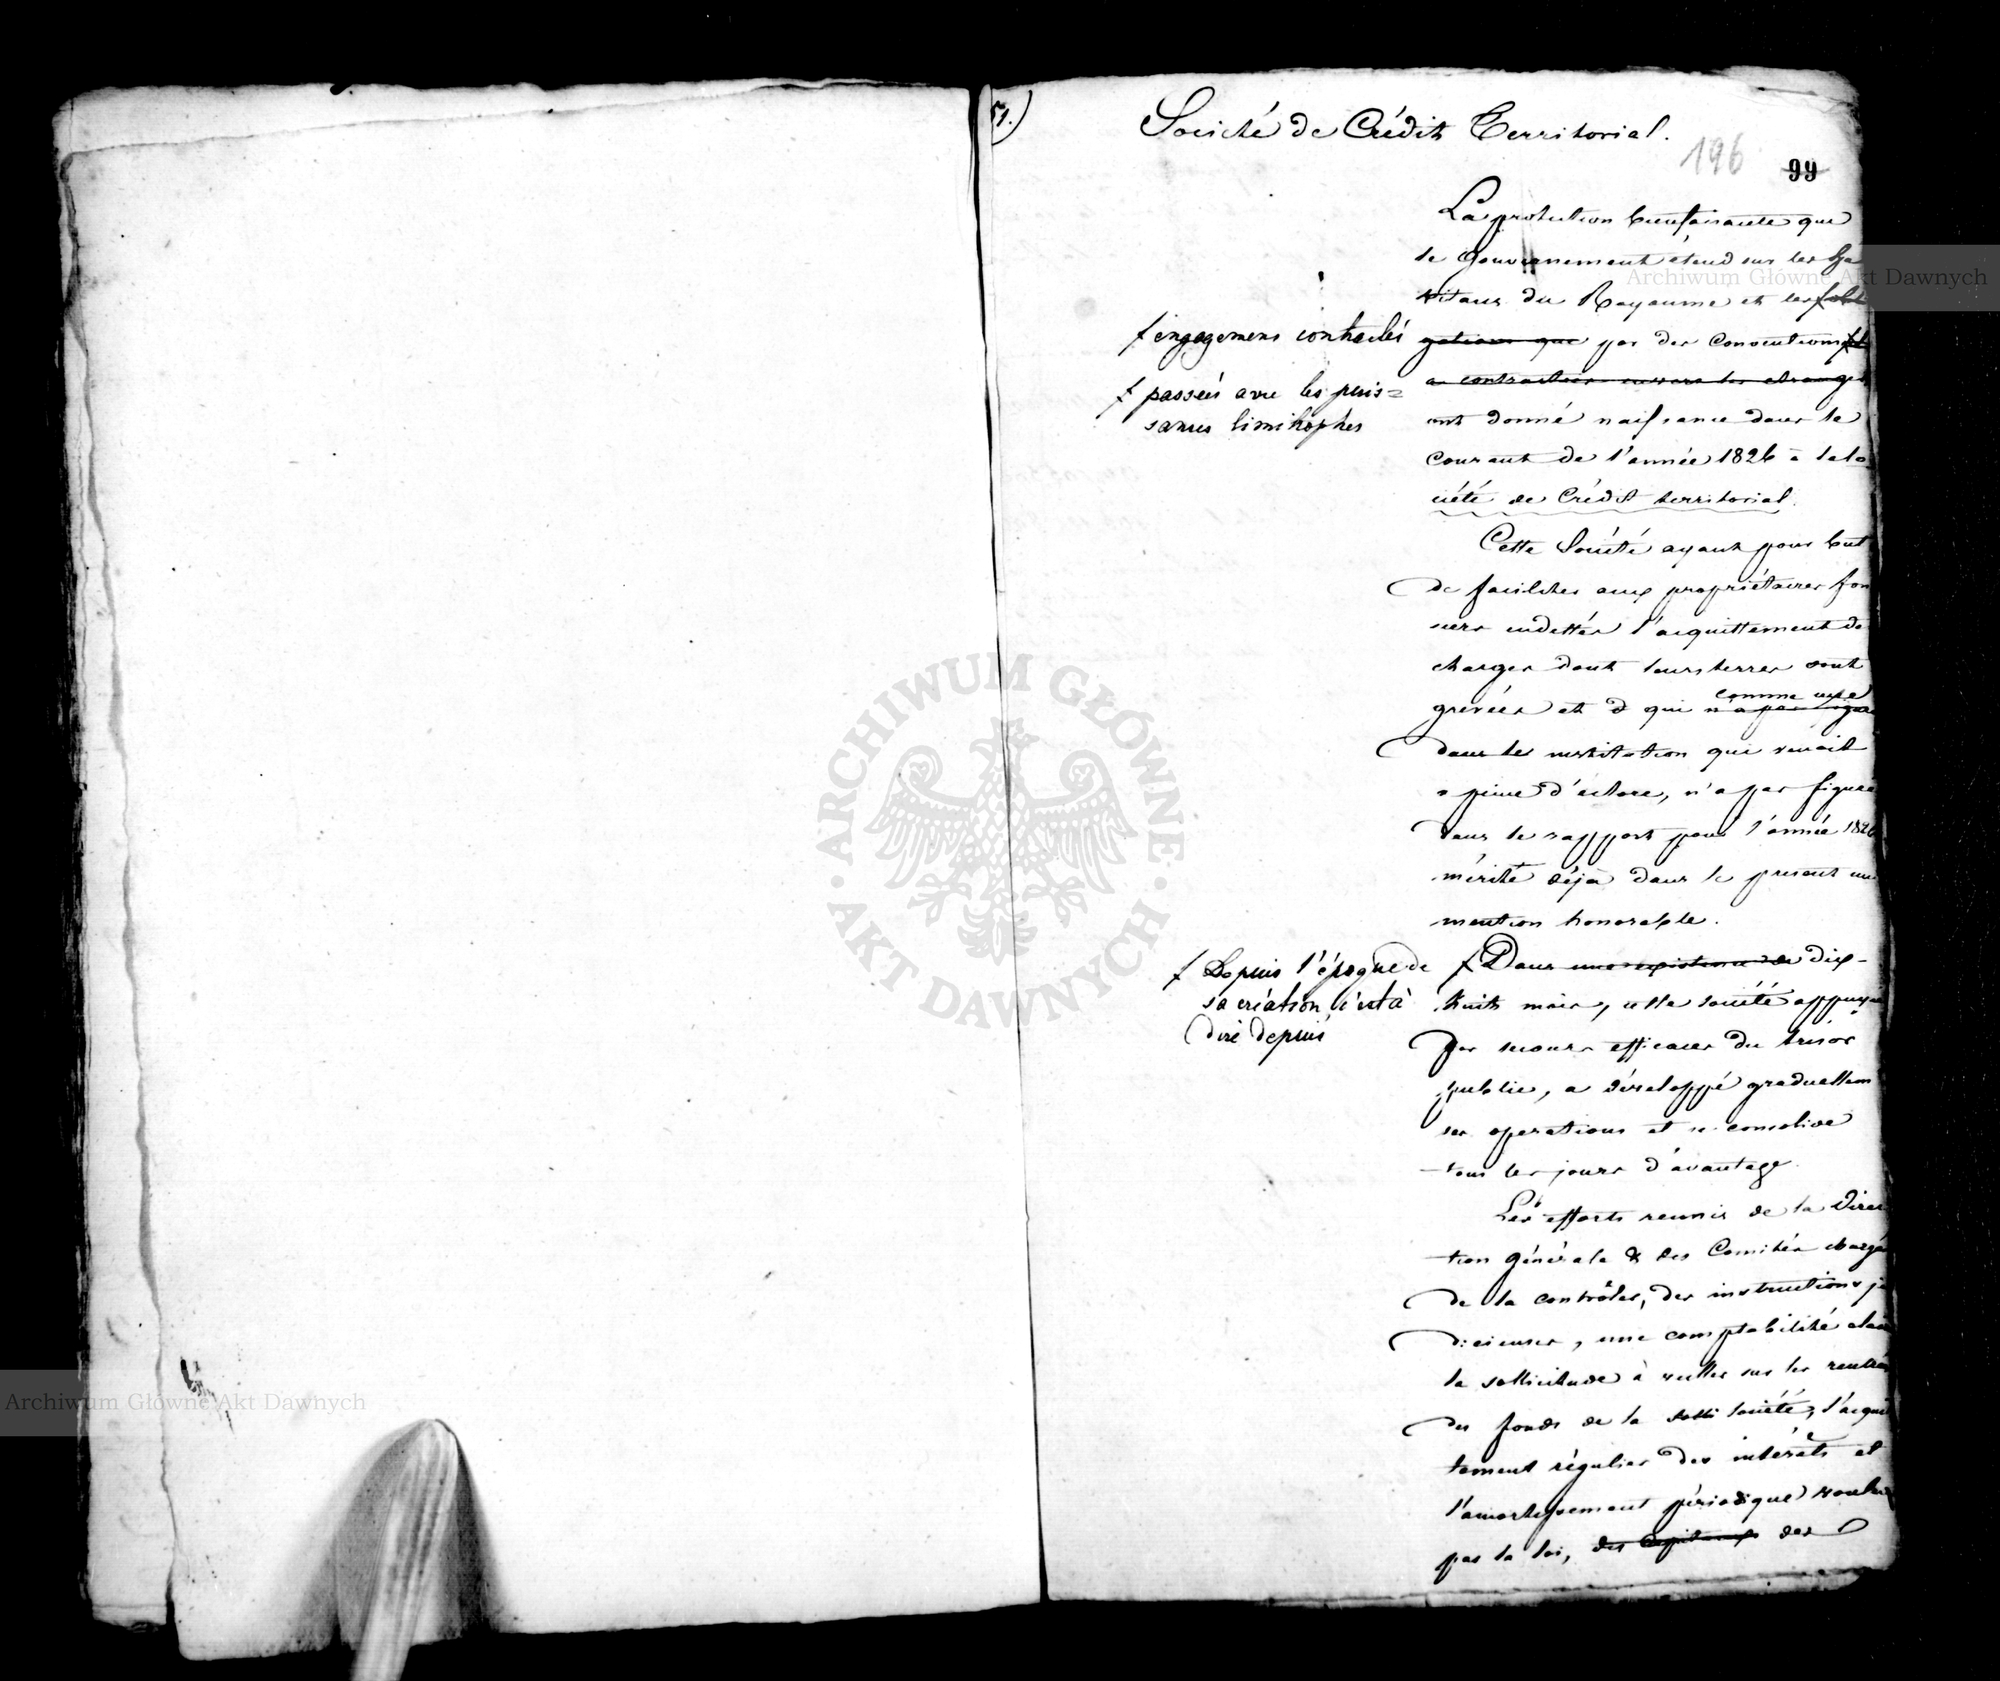 51.)
Société de Crédit Territorial.
196
99
La protection bienfaisante que
le Gouvernement étend sur les ha
bitans du Royaume et les ƒ obli
gations que par des Conventions ƒ
a contractées envers les étrangers
ont donné naissance dans le
Courant de l'année 1826 à la So
ciété de Crédit territorial.
ƒ engagemens contractés
ƒ passées avec les puis=
sances limitrophes
Cette Société ayant pour but
de faciliter aux propriétaires fon
ciers endettés l'acquittement de
charges dont leurs terres sont
grevées et qui n'a pas figuré
comme une
dans les institution qui venait
a peine d'éclore, n'a pas figuré
dans le rapport pour l'année 1826
mérite déjà dans le present une
mention honorable.
ƒ Dans une existence de dix-
huit mois, cette société appuyée
ƒ Depuis l'époque de
sa création, c'est à
dire depuis
par secours efficaces du trésor
public, a développé graduellem
ses operations et se consolide
tous les jours d'avantage.
Les efforts reunis de la Direc
tion générale & des Comités chargés
de la contrôler, des instructions ju
dicieuses, une comptabilité claire
la sollicitude à veiller sur les rentrées
des fonds de la Société, l'acquit
tement régulier des intérêts et
l'amortissement périodique voulu
par la loi, des Capitaux des
ARCHIWUM GŁÓWNE AKT DAWNYCH
Archiwum Główne Akt Dawnych
Archiwum Główne Akt Dawnych